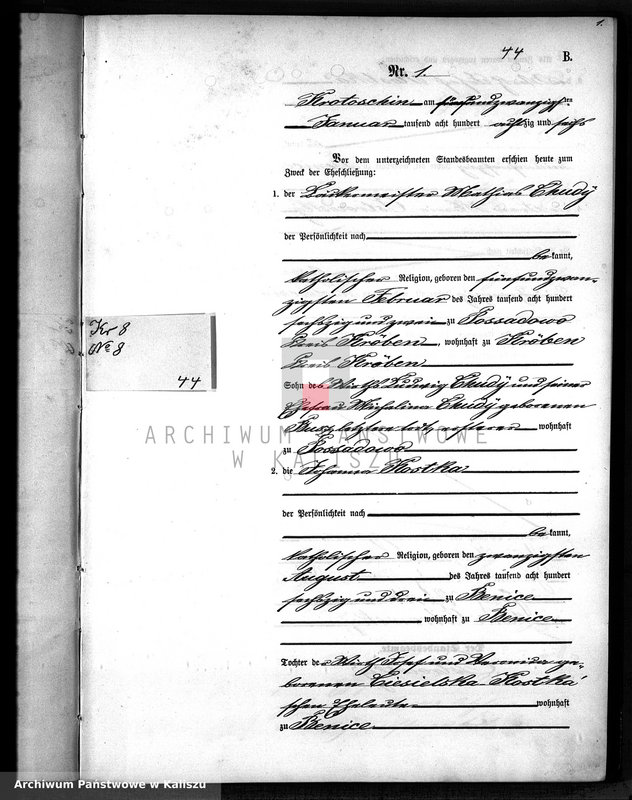 1.
44 B.
Nr. 1.
Krotoschin am fünfundzwanzigsten
Januar tausend acht hundert achtzig und sechs
Vor dem unterzeichneten Standesbeamten erschien heute zum
Zweck der Eheschließung:
1. der Bäckermeister Mathias Chudy
der Persönlichkeit nach
bekannt,
katholischer Religion, geboren den fünfundzwan-
zigsten Februar des Jahres tausend acht hundert
sechszig und zwei zu Possadowo
Kreis Kröben, wohnhaft zu Kröben
Kreis Kröben
Sohn des Wirth Ludwig Chudy und seiner
Ehefrau Michalina Chudy geborenen
letztere todt, ersterer wohnhaft
zu Possadowo
2. die Johanna Kostka
der Persönlichkeit nach
bekannt,
katholischer Religion, geboren den zwanzigsten
August des Jahres tausend acht hundert
sechszig und drei zu Benice
wohnhaft zu Benice
Tochter der Wirth Josef und Veronika ge-
borenen Ciesielska Kostka'
schen Eheleute wohnhaft
zu Benice
Kr 8
No 8
44
ARCHIWUM PAŃSTWOWE
W KALISZU
Archiwum Państwowe w Kaliszu